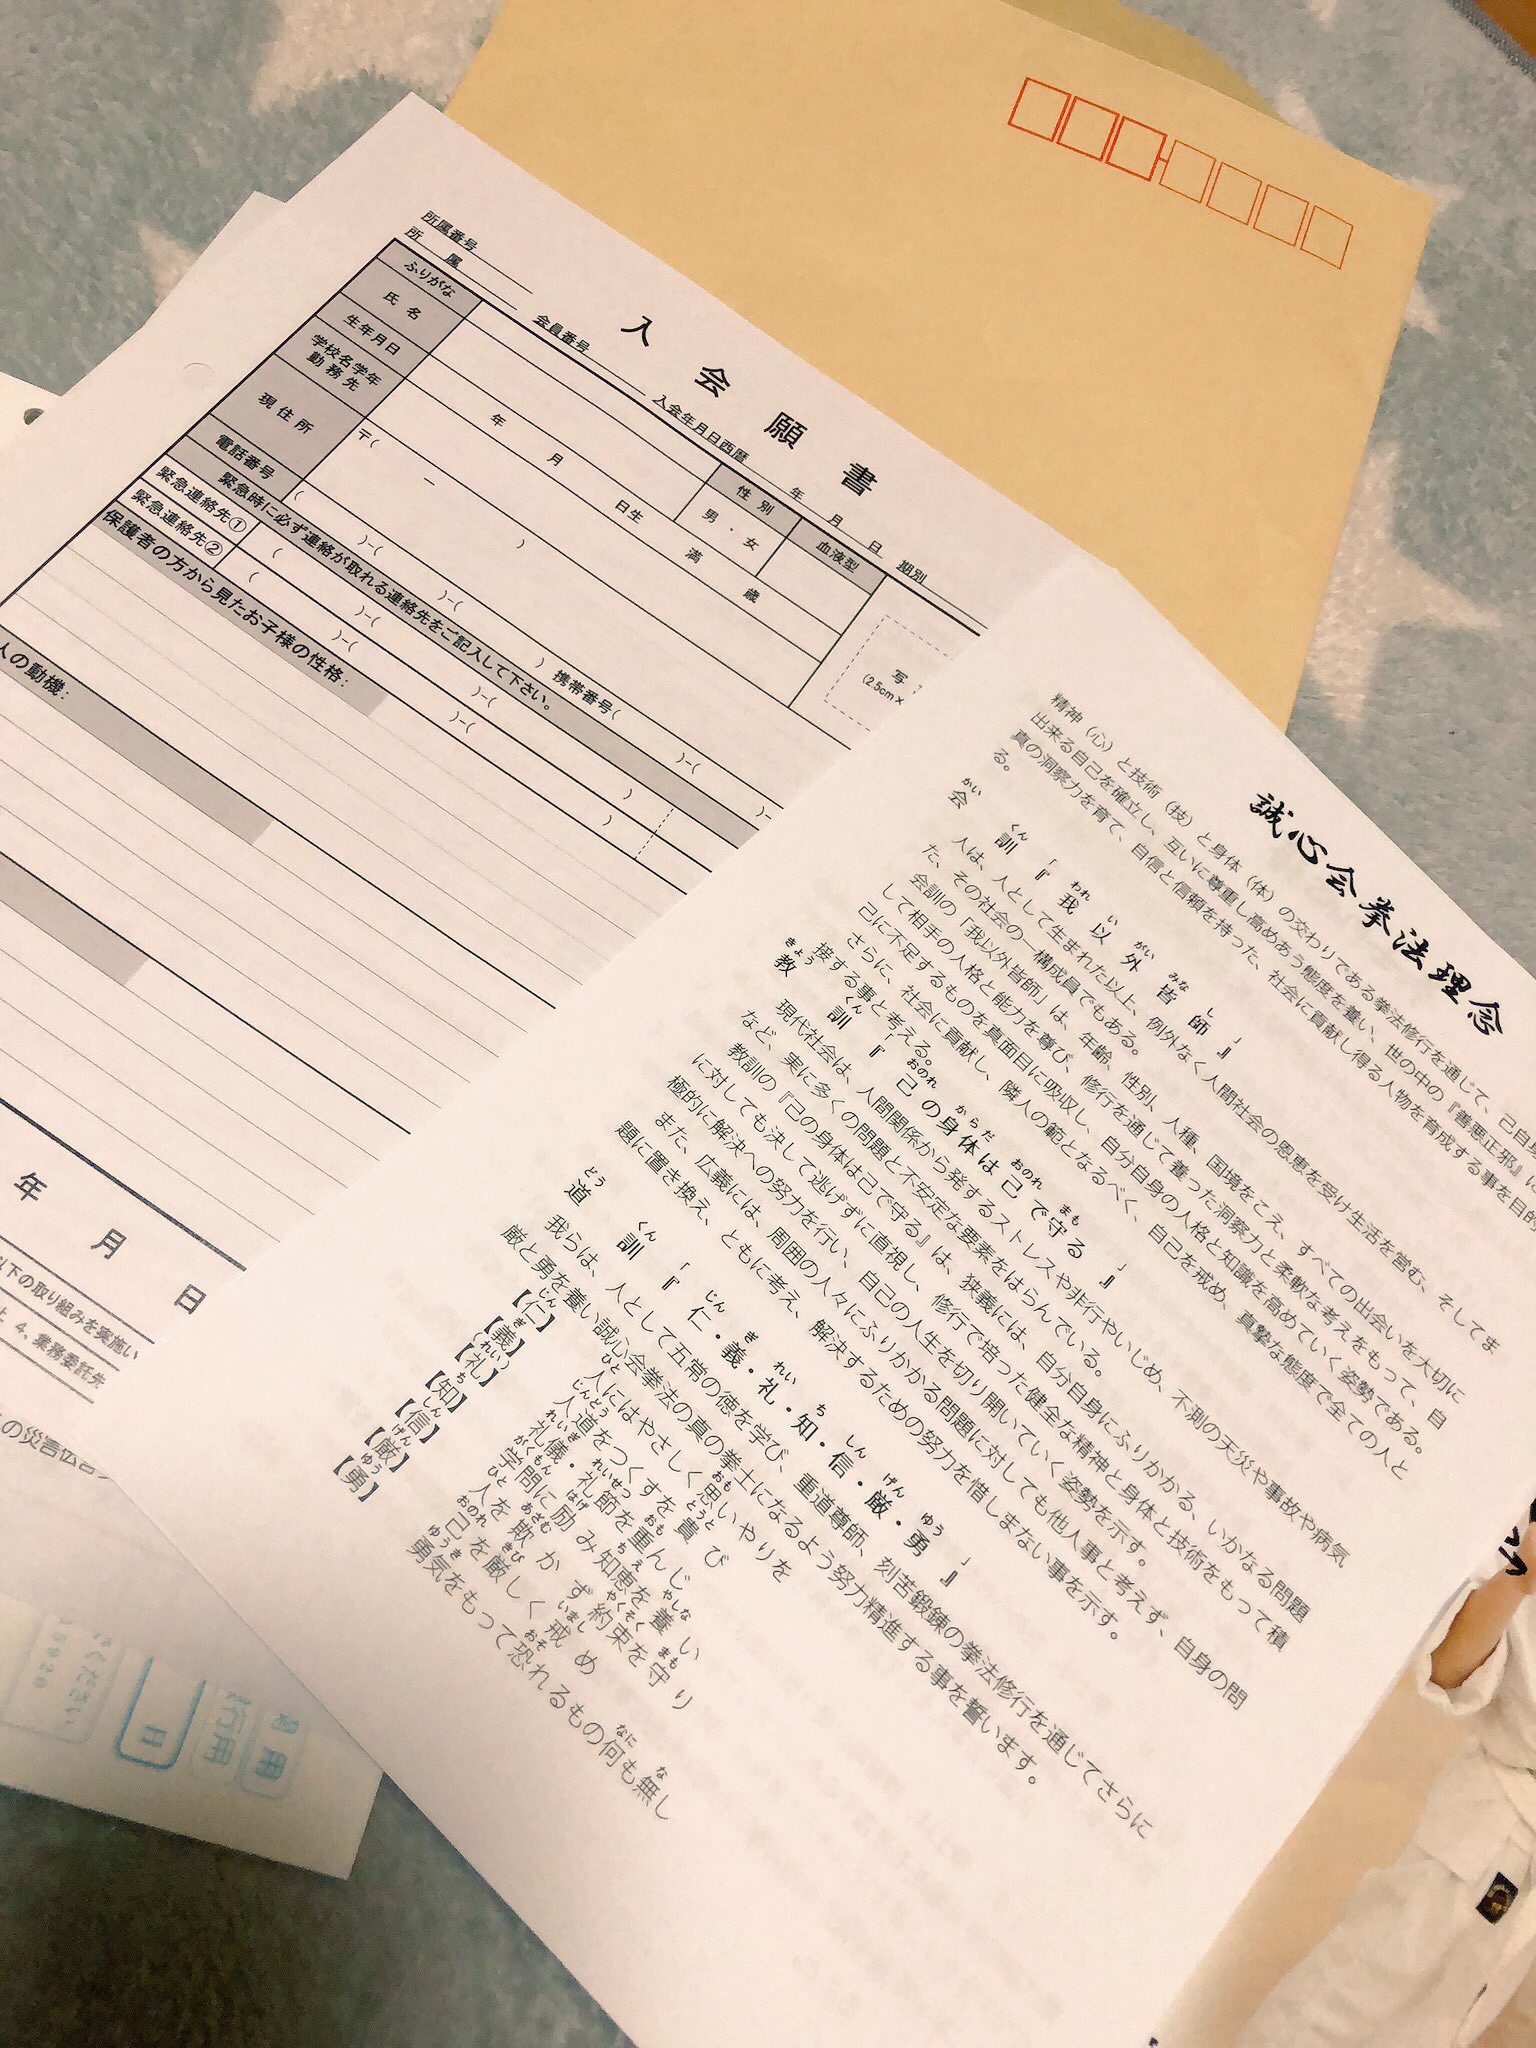 入会願書
所属番号
所属
会員番号
入会年月日西暦 年 月 日
期別
ふりがな
氏名
性別
血液型
男・女
生年月日
年 月 日生 満 歳
学校名学年
勤務先
写
(2.5cm×
現住所
〒( - )
電話番号
( )-( )-( ) 携帯番号( )-( )-
緊急時に必ず連絡が取れる連絡先をご記入して下さい。
緊急連絡先①
( )-( )-( )
緊急連絡先②
( )-( )-( )
保護者の方から見たお子様の性格:
人の動機:
年 月 日
以下の取り組みを実施い
4、業務委託先
の災害
誠心会拳法理念
精神（心）と技術（技）と身体（体）の交わりである拳法修行を通じて、己自身
出来る自己を確立し、互いに尊重し高めあう態度を養い、世の中の『善悪正邪』に
真の洞察力を育て、自信と信頼を持った、社会に貢献し得る人物を育成する事を目的
る。
かい くん われ い がい みな し
会訓「『我以外皆師』」
人は、人として生まれた以上、例外なく人間社会の恩恵を受け生活を営む、そしてま
た、その社会の一構成員でもある。
会訓の「我以外皆師」は、年齢、性別、人種、国境をこえ、すべての出会いを大切に
して相手の人格と能力を尊び、修行を通じて養った洞察力と柔軟な考えをもって、自
己に不足するものを真面目に吸収し、自分自身の人格と知識を高めていく姿勢である。
さらに、社会に貢献し、隣人の範となるべく、自己を戒め、真摯な態度で全ての人と
接する事と考える。
きょう くん おのれ からだ おのれ まも
教訓「『己の身体は己で守る』」
現代社会は、人間関係から発するストレスや非行やいじめ、不測の天災や事故や病気
など、実に多くの問題と不安定な要素をはらんでいる。
教訓の『己の身体は己で守る』は、狭義には、自分自身にふりかかる、いかなる問題
に対しても決して逃げずに直視し、修行で培った健全な精神と身体と技術をもって積
極的に解決への努力を行い、自己の人生を切り開いていく姿勢を示す。
また、広義には、周囲の人々にふりかかる問題に対しても他人事と考えず、自身の問
題に置き換え、ともに考え、解決するための努力を惜しまない事を示す。
どう くん じん ぎ れい ち しん げん ゆう
道訓「『仁・義・礼・知・信・厳・勇』」
我らは、人として五常の徳を学び、重道尊師、刻苦鍛錬の拳法修行を通じてさらに
厳と勇を養い誠心会拳法の真の拳士になるよう努力精進する事を誓います。
じん ひと おも
【仁】 人にはやさしく思いやりを
ぎ じんどう とうと
【義】 人道をつくすを貴び
れい れいぎ れいせつ おも
【礼】 礼儀・礼節を重んじ
ち がくもん はげ ちえ やしな
【知】 学問に励み知恵を養い
しん ひと あざむ やくそく まも
【信】 人を欺かず約束を守り
げん おのれ きび いまし
【厳】 己を厳しく戒め
ゆう ゆうき おそ なに な
【勇】 勇気をもって恐れるもの何も無し
行用
ください